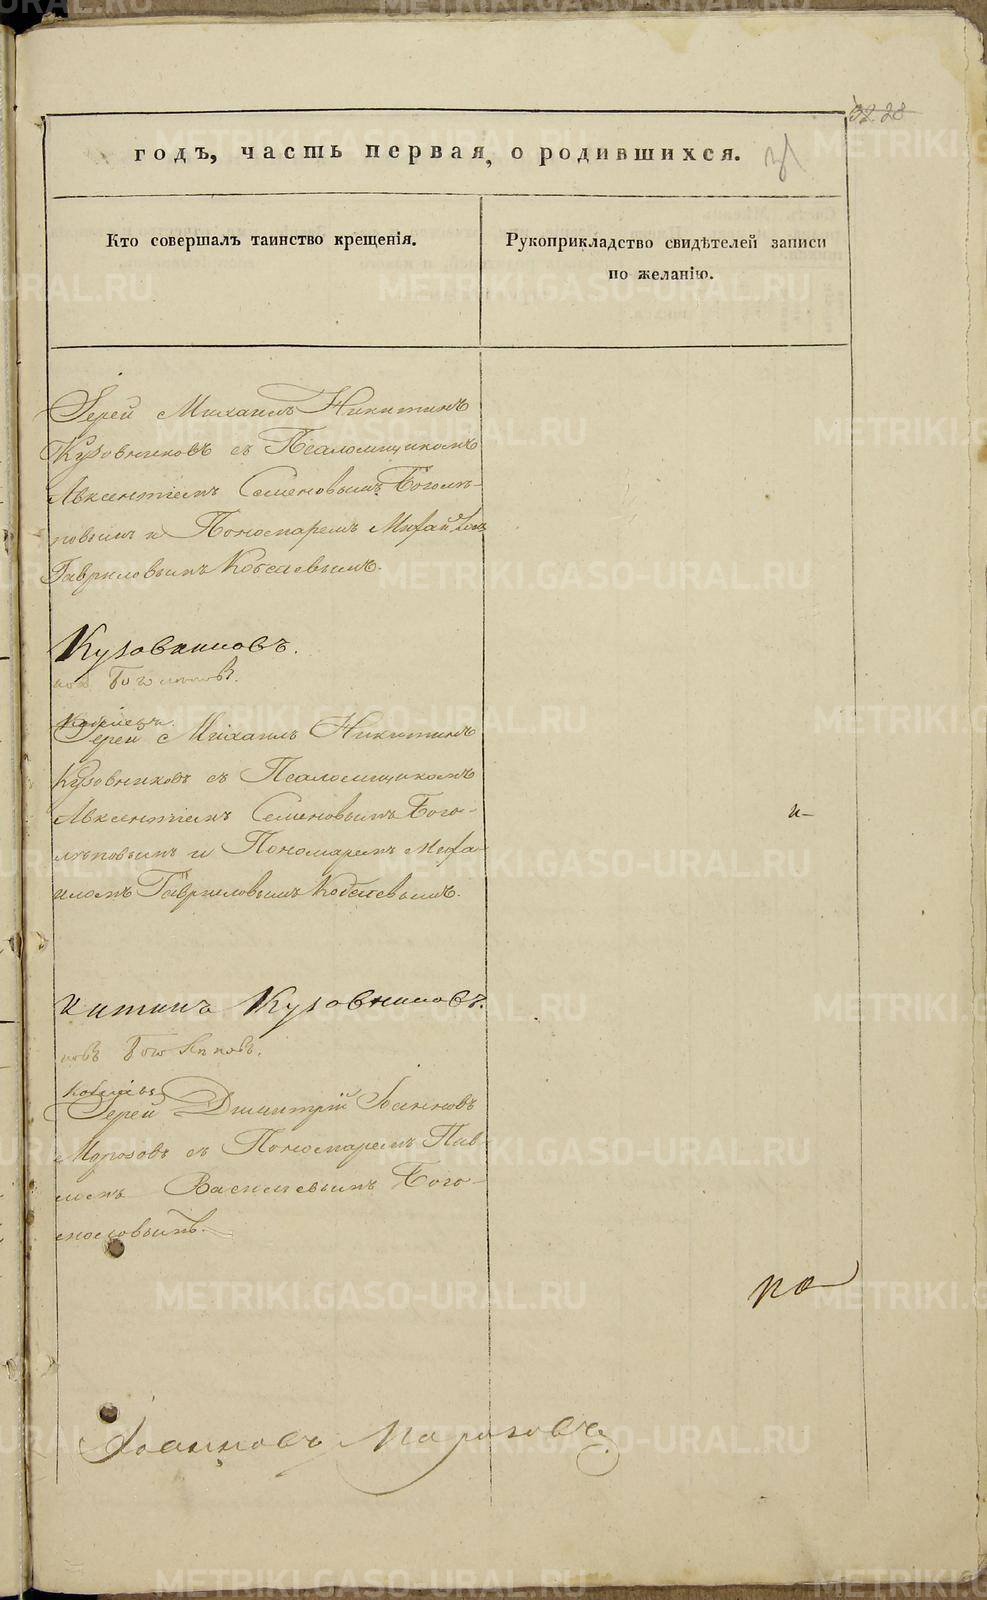 32 28
годъ, часть первая, о родившихся.
31
Кто совершалъ таинство крещенія.
Рукоприкладство свидѣтелей записи
по желанію.
Іерей Михаилъ Никитинъ
Кузовниковъ съ Псаломщикомъ
Авксентіемъ Семеновымъ Боголѣ-
повымъ и Пономаремъ Михаиломъ
Гавриловымъ
Кузовниковъ.
Іерей Михаилъ Никитинъ
Кузовниковъ съ Псаломщикомъ
Авксентіемъ Семеновымъ Бого-
лѣповымъ и Пономаремъ Миха-
иломъ Гавриловымъ
и-
китинъ Кузовниковъ.
новъ Боголѣповъ.
Іерей Дмитрій Іоанновъ
Морозовъ съ Пономаремъ Пав-
ломъ Васильевымъ Бого-
словымъ.
по
Іоанновъ Морозовъ.
METRIKI.GASO-URAL.RU